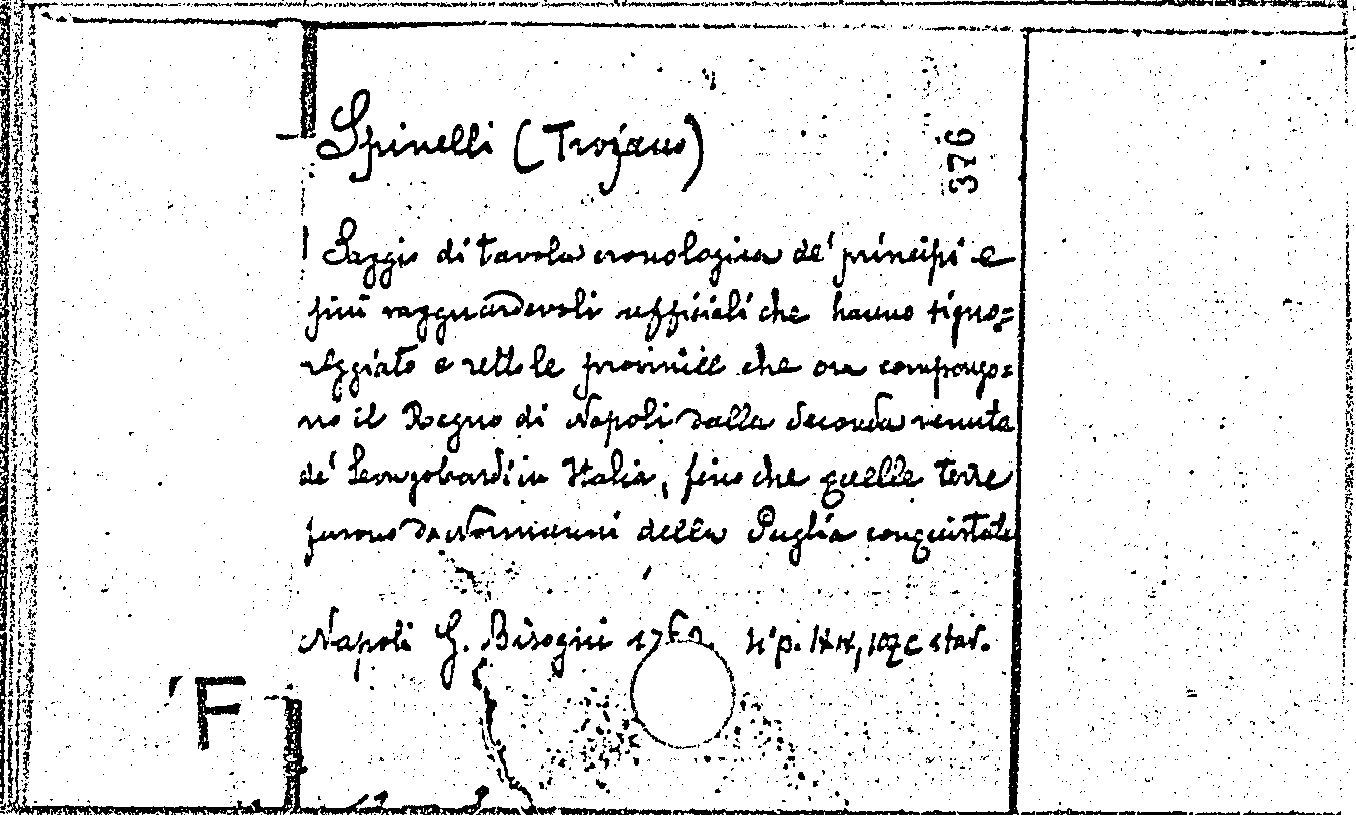 Spinelli (Trojano)
376
Saggio di tavola cronologica de' principi e
più ragguardevoli uffiziali che hanno signo=
reggiato e rette le provincie che ora compongo=
no il Regno di Napoli dalla seconda venuta
de' Longobardi in Italia, fino che quelle terre
furono da Normanni della Puglia conquistate
Napoli G. Bisogni 176
F